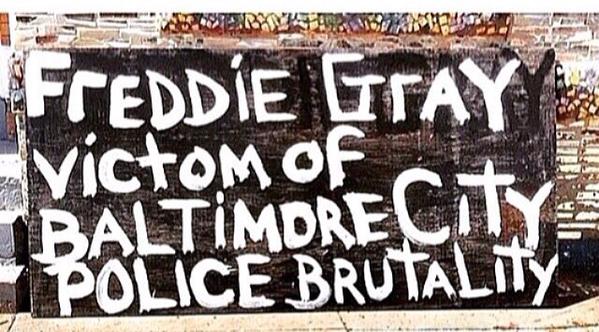 FrEDDiE GrAY
victom of
BALTiMORE CiTy
POLICE BRUTALity